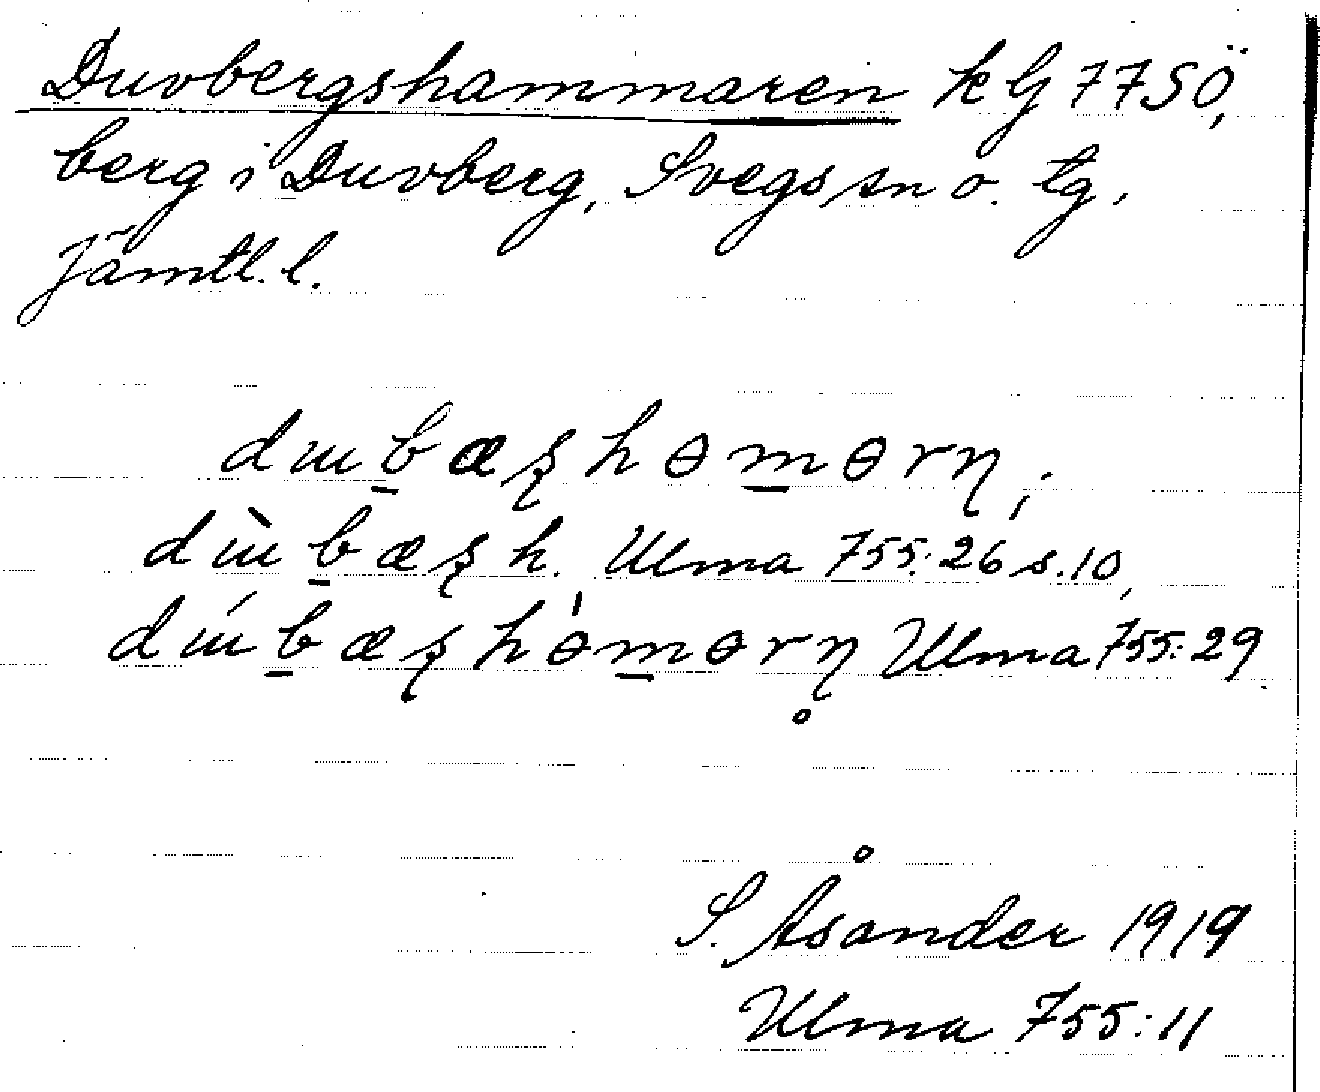 Duvbergshammaren k G 77 SÖ,
berg i Duvberg, Svegs sn o. tg,
Jämtl. l.
dɯb̲æʂhɵm̲ɵrη;
dɯ̀b̲æʂh. Ulma 755:26 s.10,
dɯ́b̲æʂhɵ̍m̲ɵrη̥ Ulma 755:29
S. Åsander 1919
Ulma 755:11